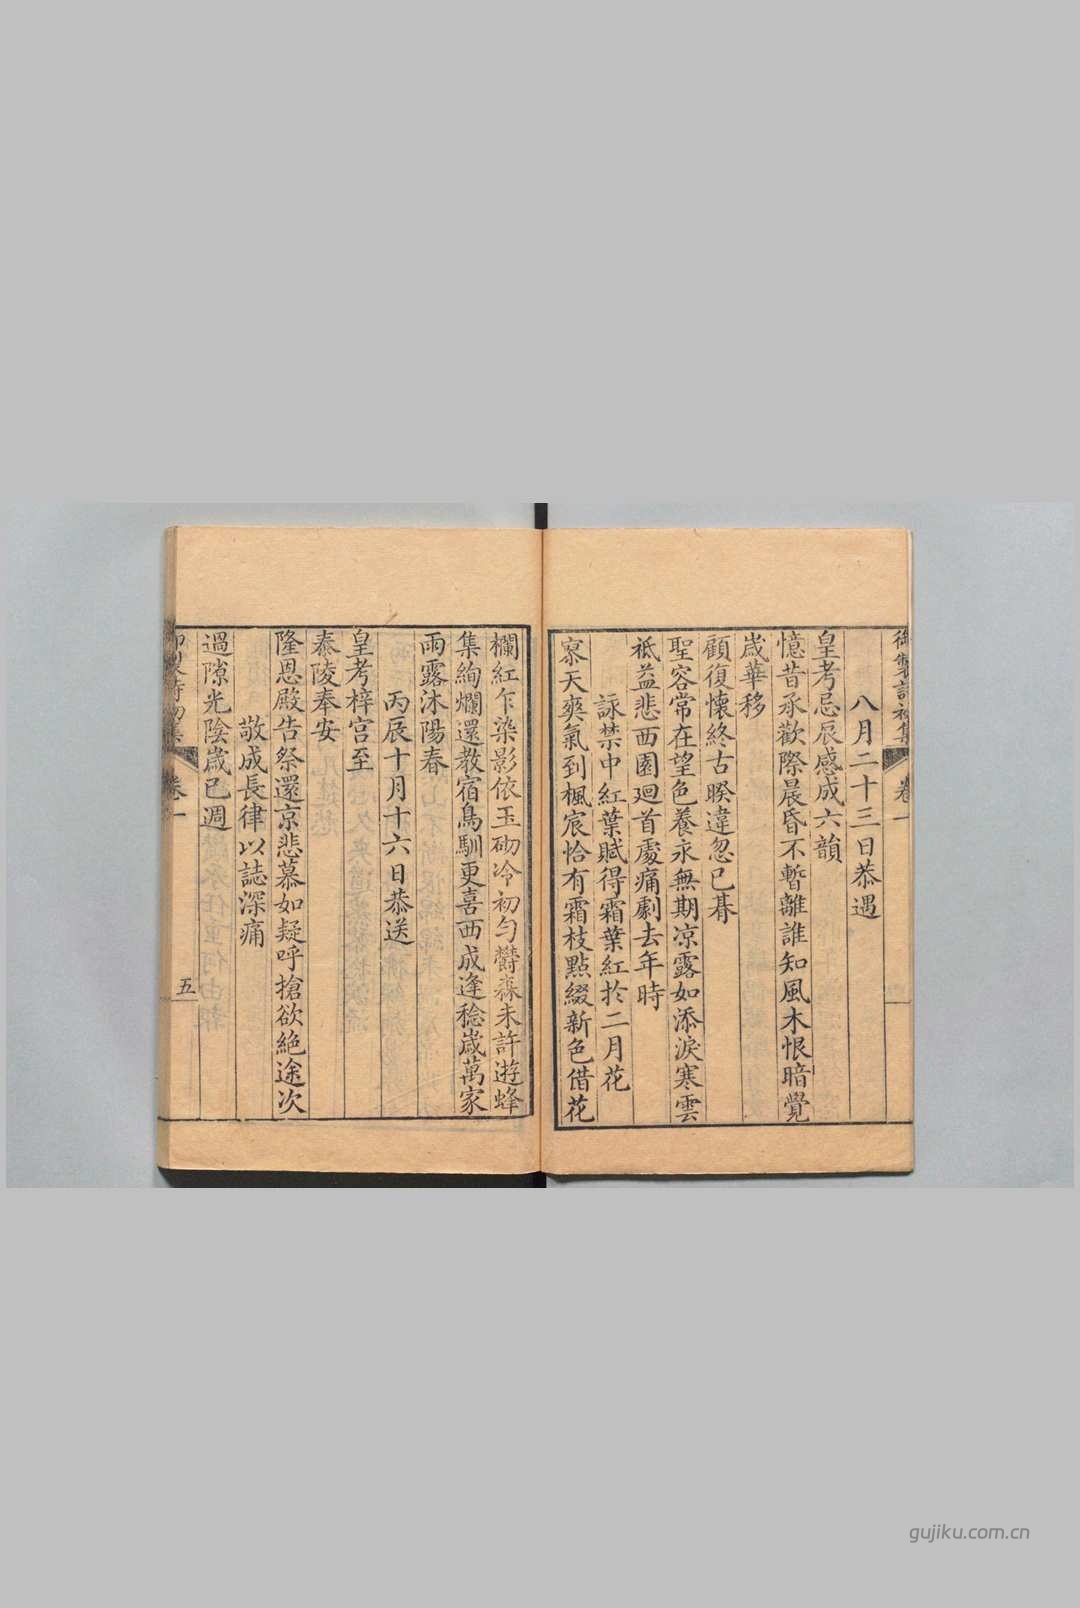 御製詩初集 卷一
八月二十三日恭遇
皇考忌辰感成六韻
憶昔承歡際晨昏不暫離誰知風木恨暗覺
歲華移
顧復懷終古暌違忽已朞
聖容常在望色養永無期凉露如添淚寒雲
祗益悲西園迴首處痛劇去年時
詠禁中紅葉賦得霜葉紅於二月花
寥天爽氣到楓宸恰有霜枝點綴新色借花
欄紅乍染影依玉砌冷初勻欝森未許遊蜂
集絢爛還教宿鳥馴更喜西成逢稔歲萬家
雨露沐陽春
丙辰十月十六日恭送
皇考梓宮至
泰陵奉安
隆恩殿告祭還京悲慕如疑呼搶欲絕途次
敬成長律以誌深痛
過隙光陰歲已週
卷一
五
gujiku.com.cn